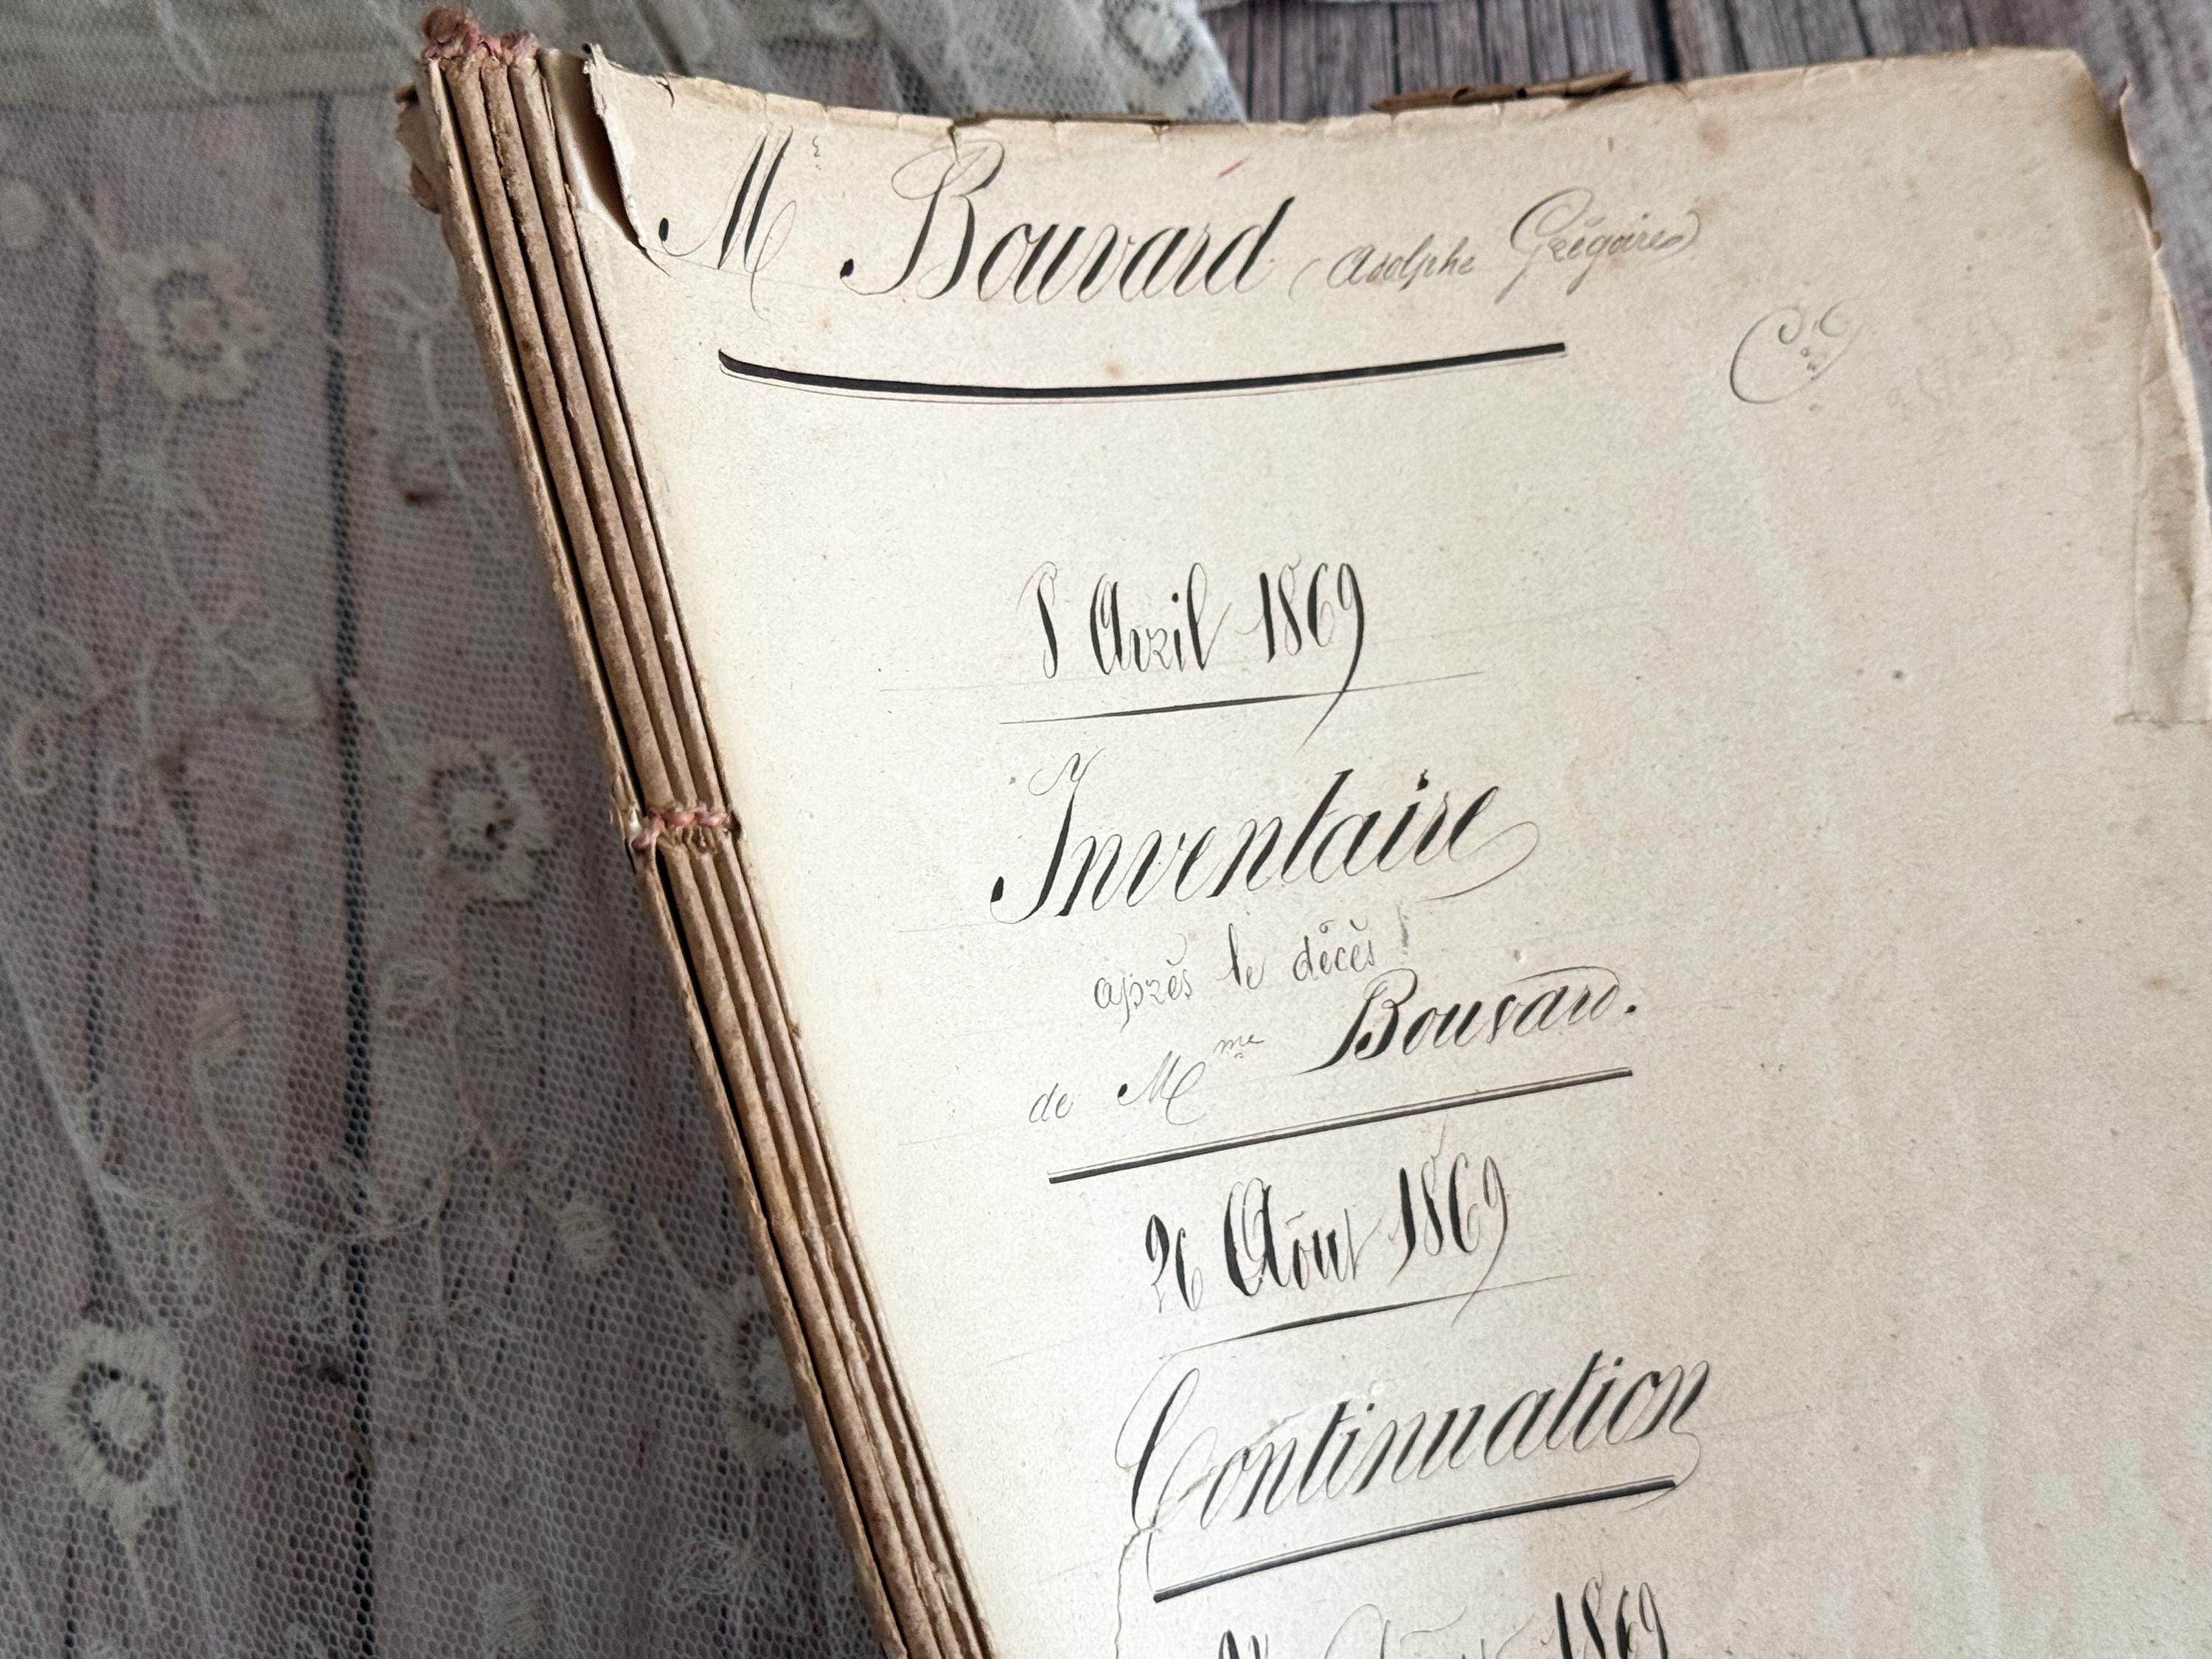 M. Bouvard (Adolphe Grégoire)
8 Avril 1869
Inventaire
après le décès
de Mme Bouvard.
26 Août 1869
Continuation
1869